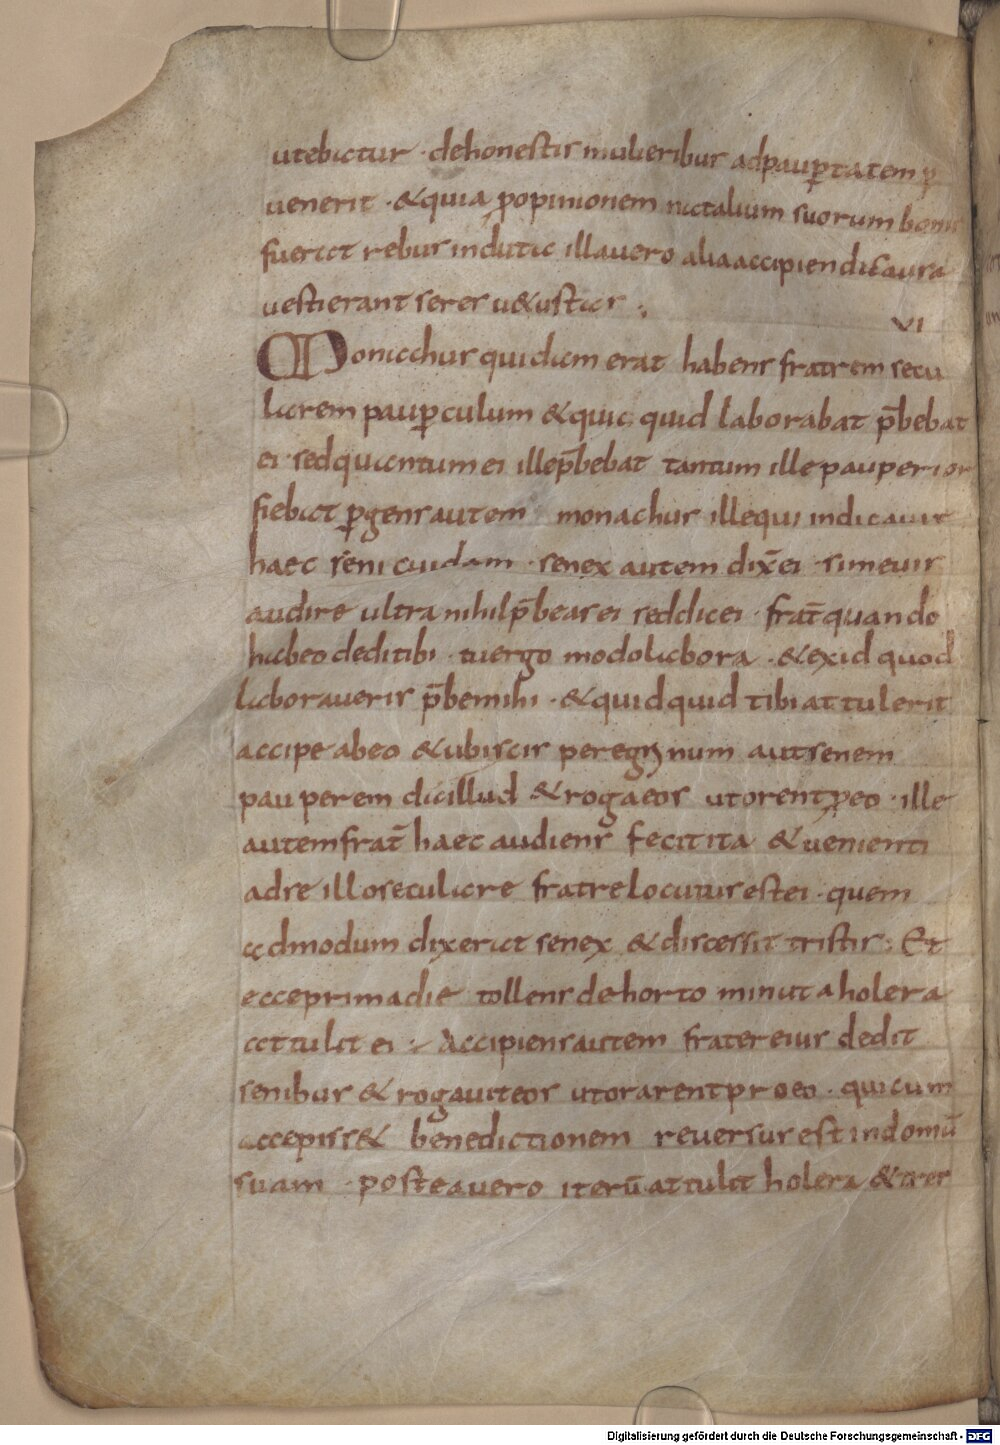 utebatur · dehonestis mulieribus adpauꝑtatem ꝑ
uenerit · &quia propinionem natalium suorum bonis
fuerat rebus induta illauero aliaaccipiendi caura
uestierant seres u&ustas ·,
VI
Monachus quidam erat habens fratrem secu
larem pauꝑculum &quic quid laborabat p̄bebat
ei · sedquantum ei illep̄bebat tantum ille pauperior
fiebat ꝑgens autem monachus illequi indicauit
haec seni cuidam · senex autem dix̄ ei · simeuis
audire ultra nihil p̄beas ei sed dic ei · frat̄ quando
habeo dedi tibi · tu ergo modo labora · & exid quod
laboraueris p̄be mihi · & quid quid tibi at tulerit
accipe abeo & ubi scis peregrinum aut senem
pau perem da illud & roga eos ut orent pro eo · ille
autem frat̄ haec audiens fecit ita & uenienti
ad se illo seculare fratre locutus est ei · quem
ad modum dixerat senex & discessit tristis : Et
ecce prima die tollens de horto minuta holera
attulit ei : Accipiens autem frater eius dedit
senibus & rogauit eos ut orarent pro eo · qui cum
accepiss& benedictionem reuersus est in domū
suam · postea uero iterū at tulit holera & tres
Digitalisierung gefördert durch die Deutsche Forschungsgemeinschaft - DFG